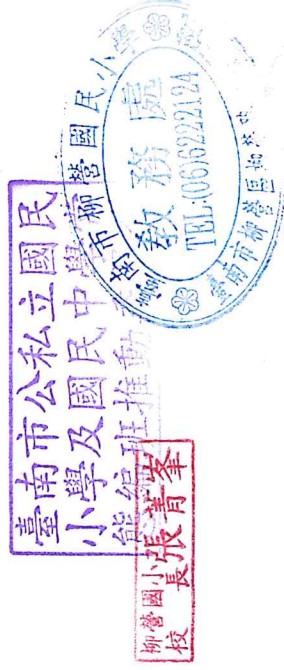 臺南市公私立國民
小學及國民中學
能編班推動
柳營國小
校長
張菁峯
臺南市柳營國民小學
教務處
TEL:(06)6222124
臺南市柳營區